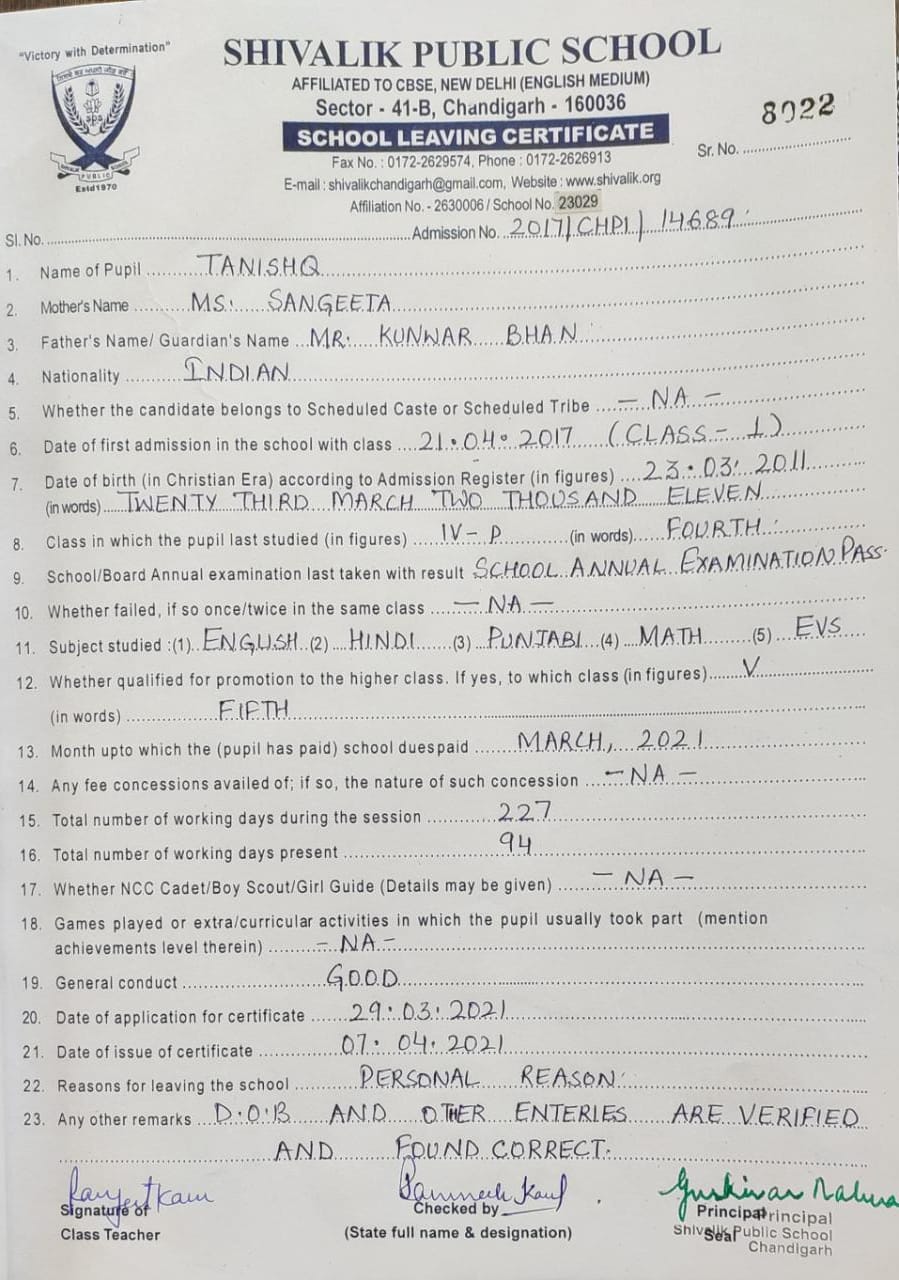 "Victory with Determination"
SHIVALIK PUBLIC SCHOOL
AFFILIATED TO CBSE, NEW DELHI (ENGLISH MEDIUM)
Sector - 41-B, Chandigarh - 160036
SCHOOL LEAVING CERTIFICATE
8022
Sr. No. ..........
Fax No. : 0172-2629574, Phone : 0172-2626913
E-mail : shivalikchandigarh@gmail.com, Website : www.shivalik.org
Affiliation No. - 2630006 / School No. 23029
sps
PUBLIC
Estd 1970
Sl. No. .......... Admission No. 2017/CHPI/14689
1. Name of Pupil TANISHQ
2. Mother's Name MS. SANGEETA
3. Father's Name/ Guardian's Name MR. KUNWAR BHAN
4. Nationality INDIAN
5. Whether the candidate belongs to Scheduled Caste or Scheduled Tribe - NA -
6. Date of first admission in the school with class 21.04.2017 (CLASS - I)
7. Date of birth (in Christian Era) according to Admission Register (in figures) 23.03.2011
(in words) TWENTY THIRD MARCH TWO THOUSAND ELEVEN
8. Class in which the pupil last studied (in figures) IV - P (in words) FOURTH
9. School/Board Annual examination last taken with result SCHOOL ANNUAL EXAMINATION PASS.
10. Whether failed, if so once/twice in the same class - NA -
11. Subject studied :(1) ENGLISH (2) HINDI (3) PUNJABI (4) MATH (5) EVS
12. Whether qualified for promotion to the higher class. If yes, to which class (in figures) V
(in words) FIFTH
13. Month upto which the (pupil has paid) school duespaid MARCH, 2021
14. Any fee concessions availed of; if so, the nature of such concession - NA -
15. Total number of working days during the session 227
16. Total number of working days present 94
17. Whether NCC Cadet/Boy Scout/Girl Guide (Details may be given) - NA -
18. Games played or extra/curricular activities in which the pupil usually took part (mention
achievements level therein) - NA -
19. General conduct GOOD
20. Date of application for certificate 29.03.2021
21. Date of issue of certificate 07.04.2021
22. Reasons for leaving the school PERSONAL REASON
23. Any other remarks D.O.B AND OTHER ENTERIES ARE VERIFIED
AND FOUND CORRECT.
Signature of
Class Teacher
Checked by
(State full name & designation)
Principal
Seal
Principal
Shivalik Public School
Chandigarh